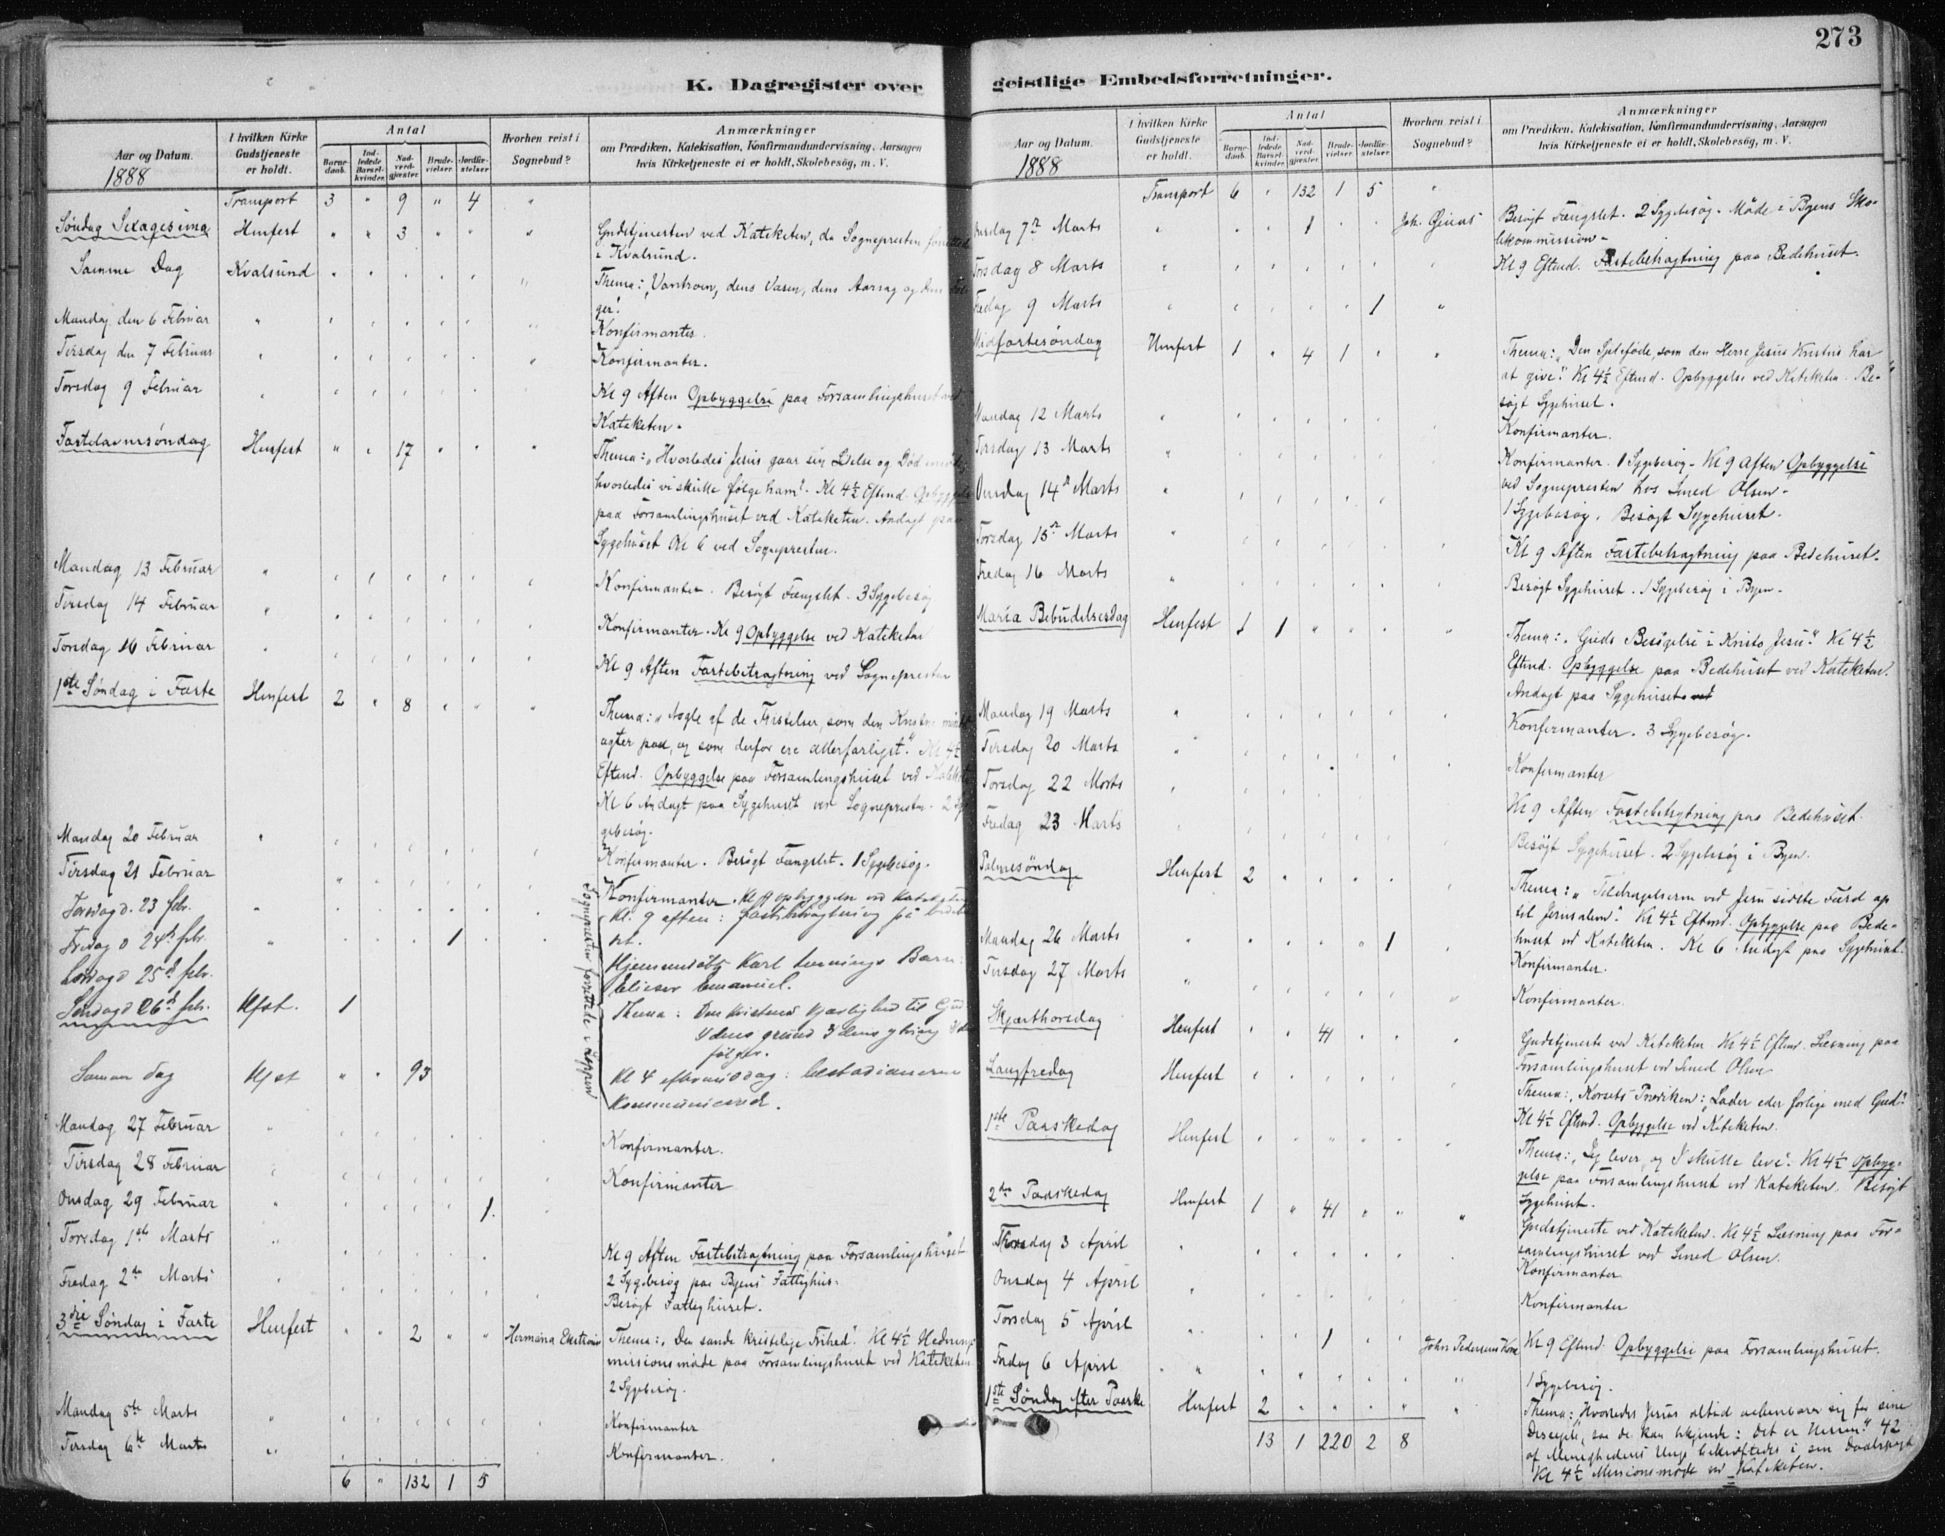 273
K. Dagregister over geistlige Embedsforretninger.
Aar og Datum.
1888
I hvilken Kirke Gudstjeneste er holdt.
Antal
Barnedaab.
Indledede Barselkvinder.
Nadverdgjæster.
Brudevielser.
Jordfæstelser.
Hvorhen reist i Sognebud?
Anmærkninger
om Prædiken, Katekisation, Konfirmandundervisning, Aarsagen
hvis Kirketjeneste ei er holdt, Skolebesög, m. V.
Transport 3 " 9 " 4 "
Søndag Sexagesima Hmfest " " 3 " " " Gudstjenesten ved Kateketen, da Sognepresten
i Kvalsund.
Samme Dag Kvalsund Thema: "Vantroen, dens Væsen, dens Aarsag og dens Følger".
Mandag den 6 Februar Konfirmanter.
Tirsdag den 7 Februar Konfirmanter.
Torsdag 9 Februar Kl 9 Aften Opbyggelse paa Forsamlingshuset ved
Kateketen.
Fastelavnssøndag Hmfest " " 17 " " " Thema: "Hvorledes Jesus gaar sin Lidelse og Død
hvorledes vi skulle følge ham". Kl 4½ Eftmd. Opbyggelse
paa Forsamlingshuset ved Kateketen. Andagt paa
Sygehuset Kl 6 ved Sognepresten.
Mandag 13 Februar Konfirmanter. Besøgt Fængslet. 3 Sygebesøg
Tirsdag 14 Februar Konfirmanter. Kl 9 Opbyggelse ved Kateketen
Torsdag 16 Februar Kl 9 Aften Fastebetragtning ved Sognepresten
1ste Søndag i Faste Hmfest 2 " 8 " " " Thema: "Nogle af de Fristelser, som den Kristne
agter paa, og som derfor ere allerfarligst." Kl 4½
Eftmd. Opbyggelse paa Forsamlingshuset ved
Kl 6 Andagt paa Sygehuset ved Sognepresten. 2 Sygebesøg.
Mandag 20 Februar Konfirmanter. Besøgt Fængslet. 1 Sygebesøg.
Tirsdag 21 Februar Konfirmanter. Kl 9 opbyggelse ved Kateketen
Torsdag d. 23 febr. Kl. 9 aften: fastebetragtning på
Fredag d 24de febr. 1
Lørdag d 25de febr. Hjemmedøbt Karl Barn:
Emanuel.
Søndag d 26de febr. Hfst. 1 Thema: Den kristnes kjærlighed til Gud
dens grund dens ytring
følger.
Samme dag Hfst " " 93 Kl 4 eftermiddag:
kommunicered.
Sognepresten forrettede i
Mandag 27 Februar Konfirmanter.
Tirsdag 28 Februar Konfirmanter
Onsdag 29 Februar 1.
Torsdag 1ste Marts Kl 9 Aften Fastebetragtning paa Forsamlingshuset
2 Sygebesøg paa Byens Fattighus.
Fredag 2den Marts Besøgt Fattighuset.
3die Søndag i Faste Hmfest " " 2 " " Hermana Thema: "Den sande kristelige Frihed". Kl 4½
missionsmøde paa Forsamlingshuset ved Kateketen
2 Sygebesøg.
Mandag 5te Marts Konfirmanter
Tirsdag 6te Marts Konfirmanter.
6 " 132 1 5
Aar og Datum.
1888
I hvilken Kirke Gudstjeneste er holdt.
Antal
Barnedaab.
Indledede Barselkvinder.
Nadverdgjæster.
Brudevielser.
Jordfæstelser.
Hvorhen reist i Sognebud?
Anmærkninger
om Prædiken, Katekisation, Konfirmandundervisning, Aarsagen
hvis Kirketjeneste ei er holdt, Skolebesög, m. V.
Transport 6 " 132 1 5 "
Onsdag 7de Marts " " " 1 " " Joh. Besøgt Fængslet. 2 Sygebesøg. Møde i Byens Skolekommission.
Torsdag 8 Marts Kl 9 Eftmd. Fastebetragtning paa Bedehuset.
Fredag 9 Marts 1
Midfastesøndag Hmfest 1 " 4 1 " " Thema: "Den Sjeleføde, som den Herre Jesus Kristus har
at give." Kl 4½ Eftmd. Opbyggelse ved Kateketen. Besøgt Sygehuset.
Mandag 12 Marts Konfirmanter.
Tirsdag 13 Marts Konfirmanter. 1 Sygebesøg. Kl 9 Aften Opbyggelse
ved Sognepresten hos Smed Olsen.
Onsdag 14de Marts 1 Sygebesøg. Besøgt Sygehuset.
Torsdag 15de Marts Kl 9 Aften Fastebetragtning paa Bedehuset.
Fredag 16 Marts Besøgt Sygehuset. 1 Sygebesøg i Byen.
Maria Bebudelsesdag Hmfest 1 1 " " " " Thema: "Guds Besøgelse i Kristo Jesu." Kl 4½
Eftmd. Opbyggelse paa Bedehuset ved Kateketen.
Andagt paa Sygehuset
Mandag 19 Marts Konfirmanter. 3 Sygebesøg.
Tirsdag 20 Marts Konfirmanter
Torsdag 22 Marts Kl 9 Aften Fastebetragtning paa Bedehuset.
Fredag 23 Marts Besøgt Sygehuset. 2 Sygebesøg i Byen.
Palmesøndag Hmfest 2 Thema: "Tildragelserne ved Jesu sidste Færd op
til Jerusalem." Kl 4½ Eftmd. Opbyggelse paa Bedehuset ved Kateketen. Kl 6 Andagt paa Sygehuset.
Mandag 26 Marts 1 Konfirmanter.
Tirsdag 27 Marts Konfirmanter.
Skjærthorsdag Hmfest " " 41 " " " Gudstjeneste ved Kateketen. Kl 4½ Eftmd. Læsning paa
Forsamlingshuset ved Smed Olsen
Langfredag Hmfest Thema: "Korsets Prædiken: "Lader eder forlige med Gud".
Kl 4½ Eftmd. Opbyggelse ved Kateketen.
1ste Paaskedag Hmfest Thema: "Jeg lever, og I skulle leve". Kl 4½ Opbyggelse paa Forsamlingshuset ved Kateketen. Besøgt
Sygehuset.
2den Paaskedag Hmfest 1 " 41 " " " Gudstjeneste ved Kateketen. Kl 4½ Læsning paa Forsamlingshuset ved Smed Olsen.
Tirsdag 3 April Konfirmanter
Onsdag 4 April Konfirmanter
Torsdag 5 April 1 John Pedersens Kl 9 Eftmd. Opbyggelse paa Forsamlingshuset.
Fredag 6 April 1 Sygebesøg.
1ste Søndag efter Paaske Hmfest 2 Thema: "Hvorledes Jesus altid aabenbarer sig for sine
Disciple, saa de kan bekjende: det er Herren." 42
af Menighedens Unge bekræftede i sin Daabspagt
Kl 4½ Missionsmøde ved Kateketen.
13 1 220 2 8